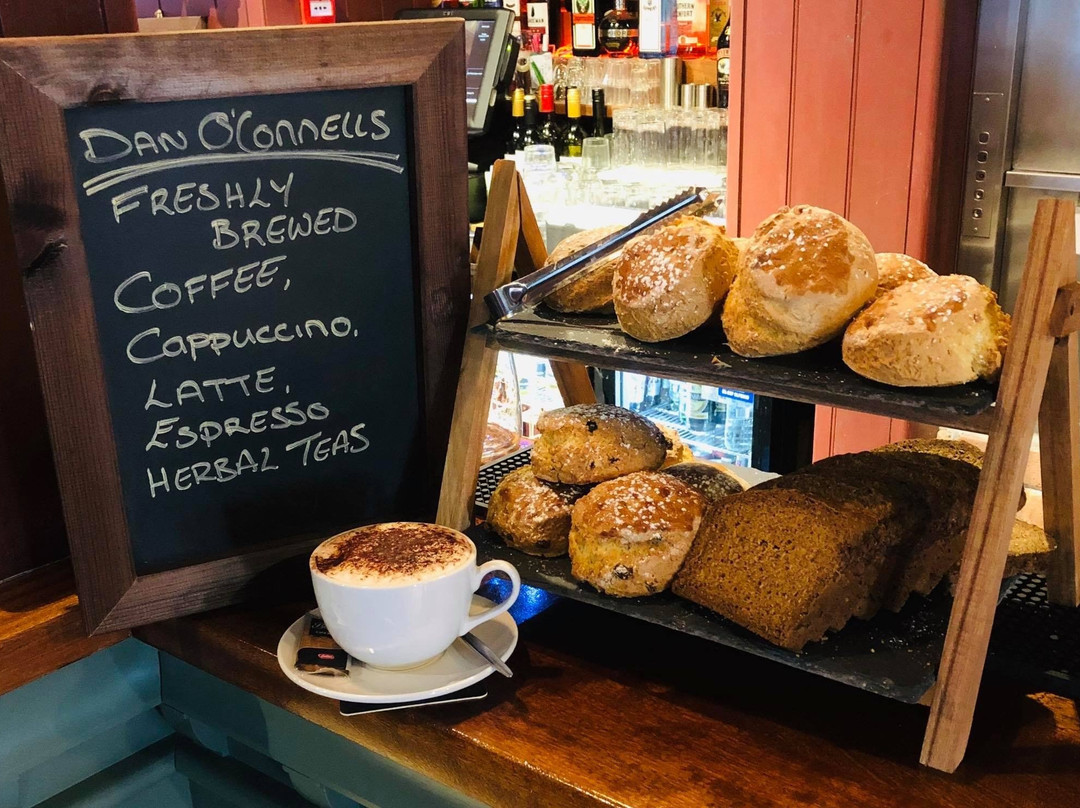 DAN O'CONNELLS
FRESHLY
BREWED
COFFEE,
Cappuccino,
LATTE,
ESPRESSO
HERBAL TEAS